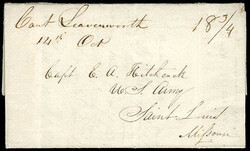 Cant Leavenworth 18 3/4
14th Oct
Capt E. A. Hitchcock
U S Army
Saint Louis
Missouri